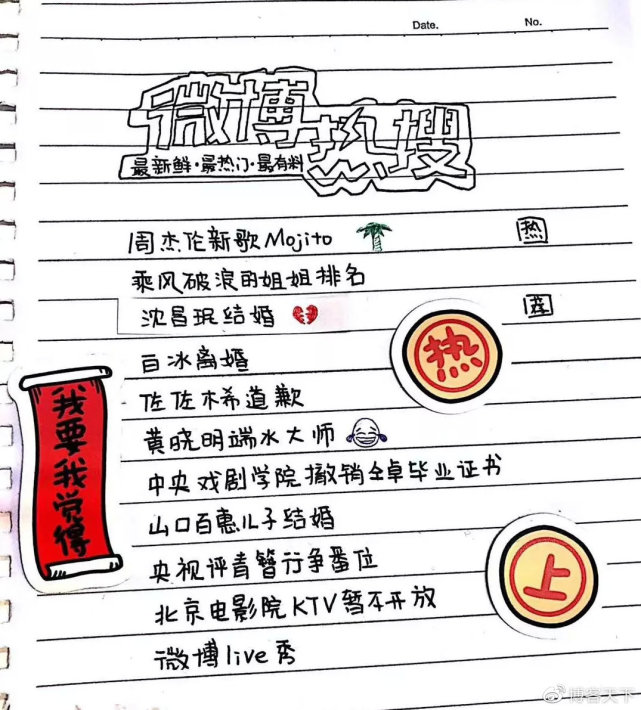 Date.
No.
微博热搜
最新鲜·最热门·最有料
周杰伦新歌Mojito
热
乘风破浪的姐姐排名
沈昌珉结婚
荐
白冰离婚
热
佐佐木希道歉
黄晓明端水大师
中央戏剧学院撤销仝卓毕业证书
山口百惠儿子结婚
央视评青簪行争番位
北京电影院KTV暂不开放
微博live秀
我要我觉得
上
博客天下